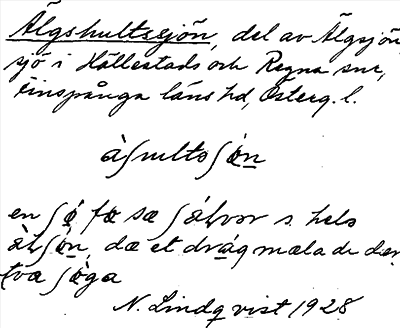 Älgshultssjön, del av Älgsjön,
sjö i Hällestads och Regna snr,
Finspånga läns hd, Österg. l.
àʃultsʃö̀n
en ʃö̀ fœ sæ ʃálvər s. hels
ʃö̀n, dæ et drág mæla de
tvα ʃö̀gα
N. Lindqvist 1928